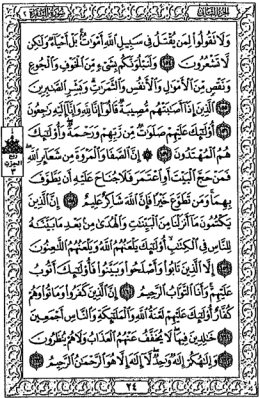 الجزء الثاني سورة البقرة ٢
وَلَا تَقُولُوا لِمَن يُقْتَلُ فِي سَبِيلِ اللَّهِ أَمْوَاتٌ بَلْ أَحْيَاءٌ وَلَٰكِن
لَّا تَشْعُرُونَ ﴿١٥٤﴾ وَلَنَبْلُوَنَّكُم بِشَيْءٍ مِّنَ الْخَوْفِ وَالْجُوعِ
وَنَقْصٍ مِّنَ الْأَمْوَالِ وَالْأَنفُسِ وَالثَّمَرَاتِ وَبَشِّرِ الصَّابِرِينَ
﴿١٥٥﴾ الَّذِينَ إِذَا أَصَابَتْهُم مُّصِيبَةٌ قَالُوا إِنَّا لِلَّهِ وَإِنَّا إِلَيْهِ رَاجِعُونَ
﴿١٥٦﴾ أُولَٰئِكَ عَلَيْهِمْ صَلَوَاتٌ مِّن رَّبِّهِمْ وَرَحْمَةٌ وَأُولَٰئِكَ
هُمُ الْمُهْتَدُونَ ﴿١٥٧﴾ إِنَّ الصَّفَا وَالْمَرْوَةَ مِن شَعَائِرِ اللَّهِ
فَمَنْ حَجَّ الْبَيْتَ أَوِ اعْتَمَرَ فَلَا جُنَاحَ عَلَيْهِ أَن يَطَّوَّفَ
بِهِمَا وَمَن تَطَوَّعَ خَيْرًا فَإِنَّ اللَّهَ شَاكِرٌ عَلِيمٌ ﴿١٥٨﴾ إِنَّ الَّذِينَ
يَكْتُمُونَ مَا أَنزَلْنَا مِنَ الْبَيِّنَاتِ وَالْهُدَىٰ مِن بَعْدِ مَا بَيَّنَّاهُ
لِلنَّاسِ فِي الْكِتَابِ أُولَٰئِكَ يَلْعَنُهُمُ اللَّهُ وَيَلْعَنُهُمُ اللَّاعِنُونَ
﴿١٥٩﴾ إِلَّا الَّذِينَ تَابُوا وَأَصْلَحُوا وَبَيَّنُوا فَأُولَٰئِكَ أَتُوبُ
عَلَيْهِمْ وَأَنَا التَّوَّابُ الرَّحِيمُ ﴿١٦٠﴾ إِنَّ الَّذِينَ كَفَرُوا وَمَاتُوا وَهُمْ
كُفَّارٌ أُولَٰئِكَ عَلَيْهِمْ لَعْنَةُ اللَّهِ وَالْمَلَائِكَةِ وَالنَّاسِ أَجْمَعِينَ
﴿١٦١﴾ خَالِدِينَ فِيهَا لَا يُخَفَّفُ عَنْهُمُ الْعَذَابُ وَلَا هُمْ يُنظَرُونَ
﴿١٦٢﴾ وَإِلَٰهُكُمْ إِلَٰهٌ وَاحِدٌ لَّا إِلَٰهَ إِلَّا هُوَ الرَّحْمَٰنُ الرَّحِيمُ ﴿١٦٣﴾
ربع
الحزب
٣
٢٤